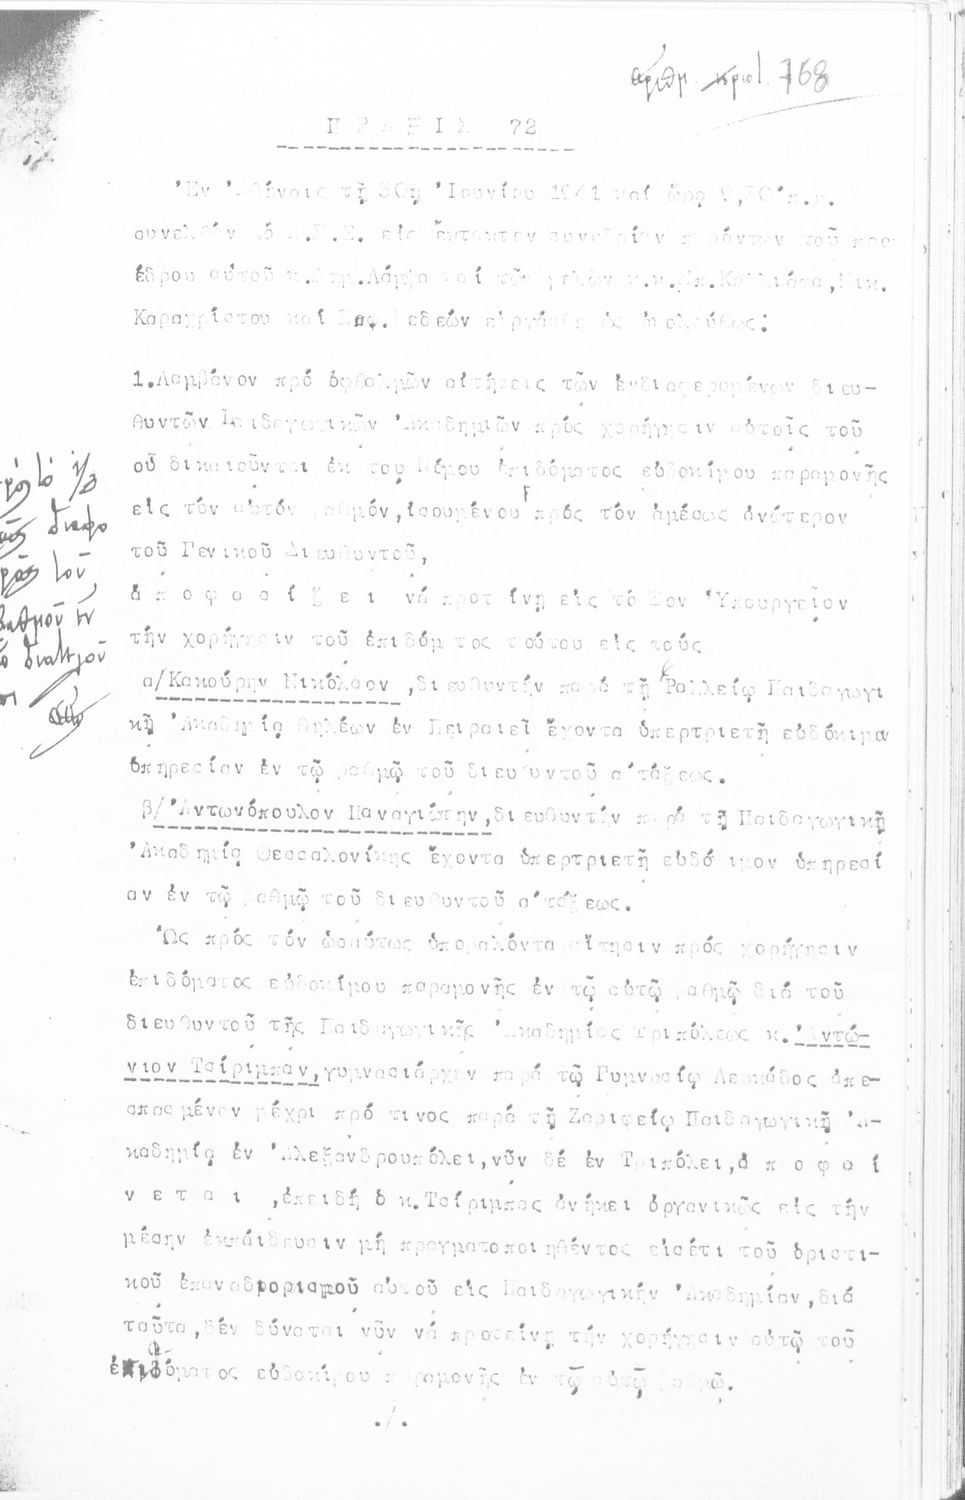 ἀριθμ. πρωτ. 768
ΠΡΑΞΙΣ 72
Ἐν Ἀθήναις τῇ 30ῃ Ἰουνίου 1941 καί ὥρᾳ 9,30 π.μ.
συνελθόν τό Α.Γ.Σ. εἰς ἔκτακτον συνεδρίαν παρόντων τοῦ προ
έδρου αὐτοῦ κ.Δημ.Λάμψα καί τῶν μελῶν κ.κ.Σπ.Καλλιάφα,Νικ.
Καραχρίστου καί Σωφ.Γεδεών εἰργάσθη ὡς ἀκολούθως:
1.Λαμβάνον πρό ὀφθαλμῶν αἰτήσεις τῶν ἐνδιαφερομένων διευ-
θυντῶν Παιδαγωγικῶν Ἀκαδημιῶν πρός χορήγησιν αὐτοῖς τοῦ
οὗ δικαιοῦνται ἐκ του Νόμου ἐπιδόματος εὐδοκίμου παραμονῆς
εἰς τόν αὐτόν βαθμόν,ἰσουμένου πρός τόν ἀμέσως ἀνώτερον
τοῦ Γενικοῦ Διευθυντοῦ,
ἀ π ο φ α σ ί ζ ε ι νά προτείνῃ εἰς τό Σον Ὑπουργεῖον
τήν χορήγησιν τοῦ ἐπιδόματος τούτου εἰς τούς
α/Κακούρην Νικόλαον,διευθυντήν παρά τῇ Ῥαλλείῳ Παιδαγωγι
κῇ Ἀκαδημίᾳ θηλέων ἐν Πειραιεῖ ἔχοντα ὑπερτριετῆ εὐδόκιμον
ὑπηρεσίαν ἐν τῷ βαθμῷ τοῦ διευθυντοῦ α΄τάξεως.
β/Ἀντωνόπουλον Παναγιώτην,διευθυντήν παρά τῇ Παιδαγωγικῇ
Ἀκαδημίᾳ Θεσσαλονίκης ἔχοντα ὑπερτριετῆ εὐδόκιμον ὑπηρεσί
αν ἐν τῷ βαθμῷ τοῦ διευθυντοῦ α΄τάξεως.
Ὡς πρός τόν ὡσαύτως ὑποβαλόντα αἴτησιν πρός χορήγησιν
ἐπιδόματος εὐδοκίμου παραμονῆς ἐν τῷ αὐτῷ βαθμῷ διά τοῦ
διευθυντοῦ τῆς Παιδαγωγικῆς Ἀκαδημίας Τριπόλεως κ.Ἀντώ-
νιον Τσίριμπαν,γυμνασιάρχην παρά τῷ Γυμνασίῳ Λευκάδος ἀπε-
σπασμένον μέχρι πρό τινος παρά τῇ Ζαριφείῳ Παιδαγωγικῇ Ἀ-
καδημίᾳ ἐν Ἀλεξανδρουπόλει,νῦν δέ ἐν Τριπόλει,ἀ π ο φ α ί
ν ε τ α ι ,ἐπειδή ὁ κ.Τσίριμπας ἀνήκει ὀργανικῶς εἰς τήν
μέσην ἐκπαίδευσιν μή πραγματοποιηθέντος εἰσέτι τοῦ ὁριστι-
κοῦ ἐπαναδιορισμοῦ αὐτοῦ εἰς Παιδαγωγικήν Ἀκαδημίαν,διά
ταῦτα,δέν δύναται νῦν νά προτείνῃ τήν χορήγησιν αὐτῷ τοῦ
ἐπιδόματος εὐδοκίμου παραμονῆς ἐν τῷ αὐτῷ βαθμῷ.
./.